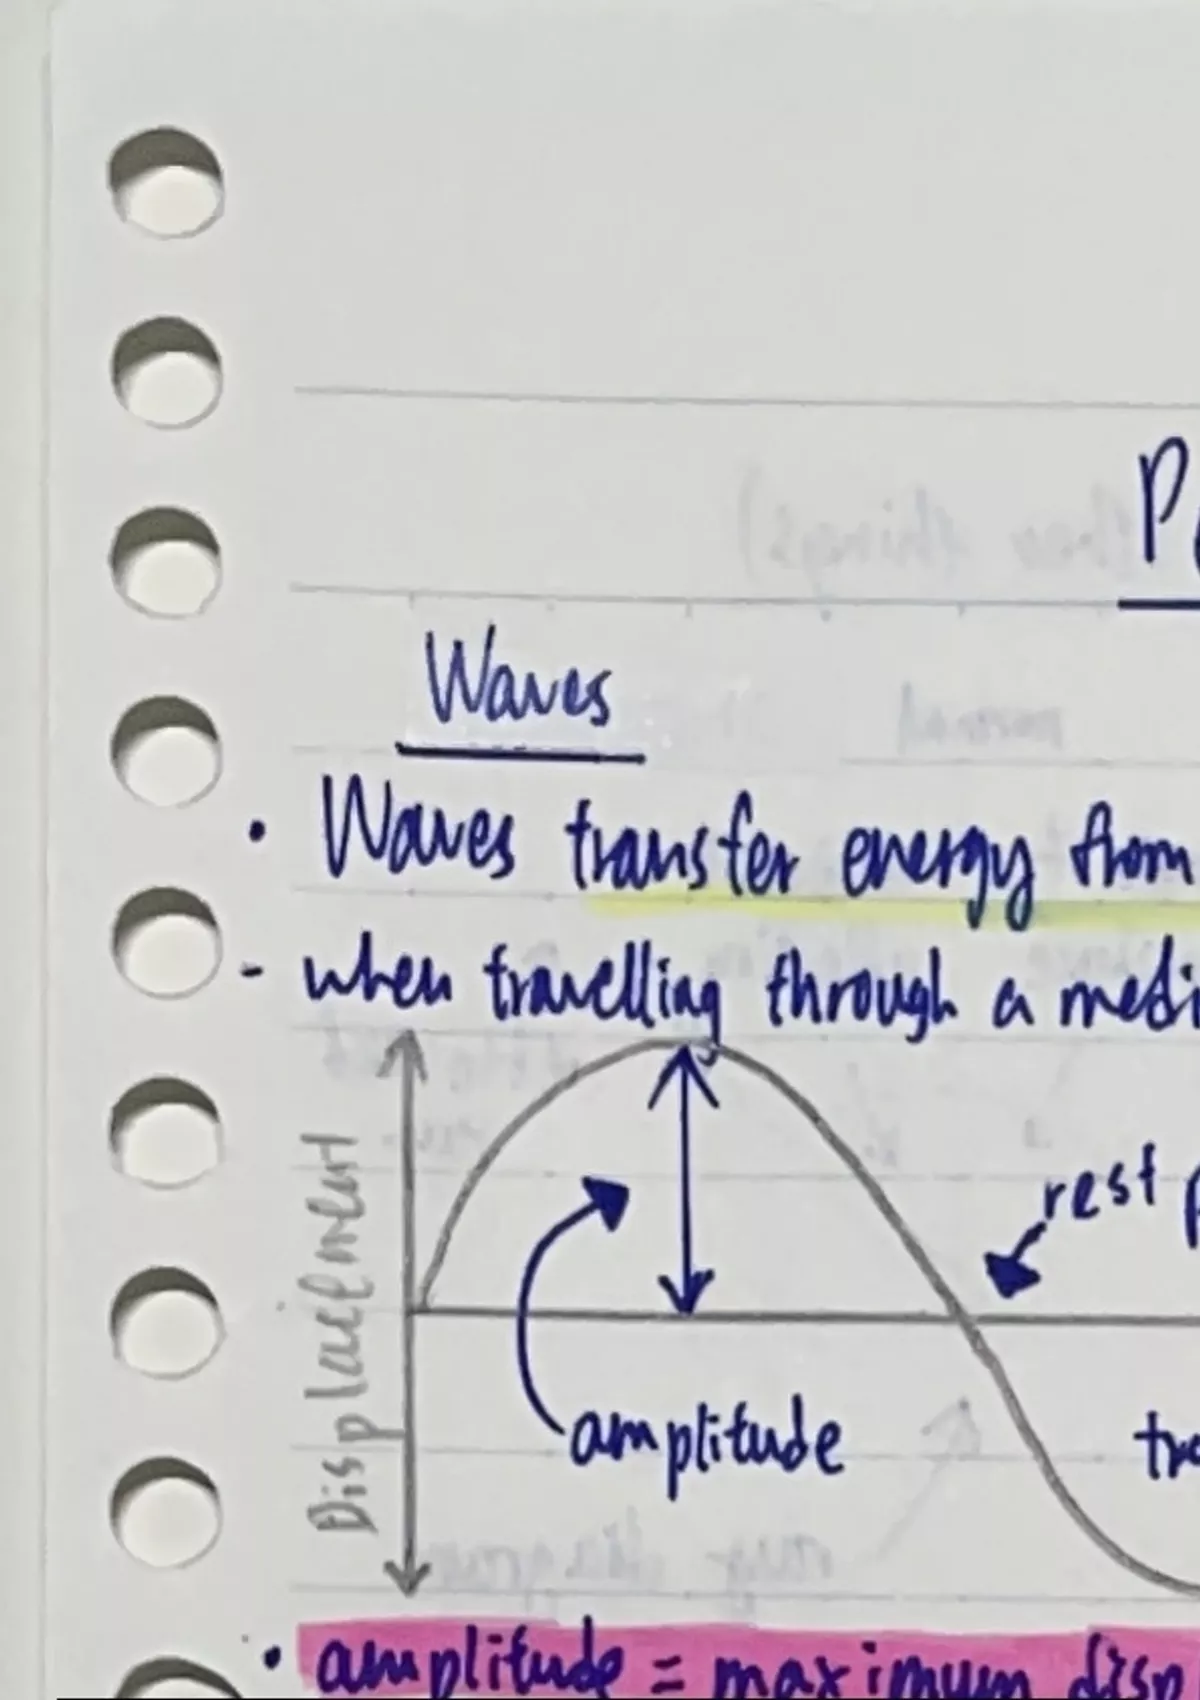 Waves
• Waves transfer energy from
- when travelling through a medi
Displacement
rest
amplitude
• amplitude = maximum disp